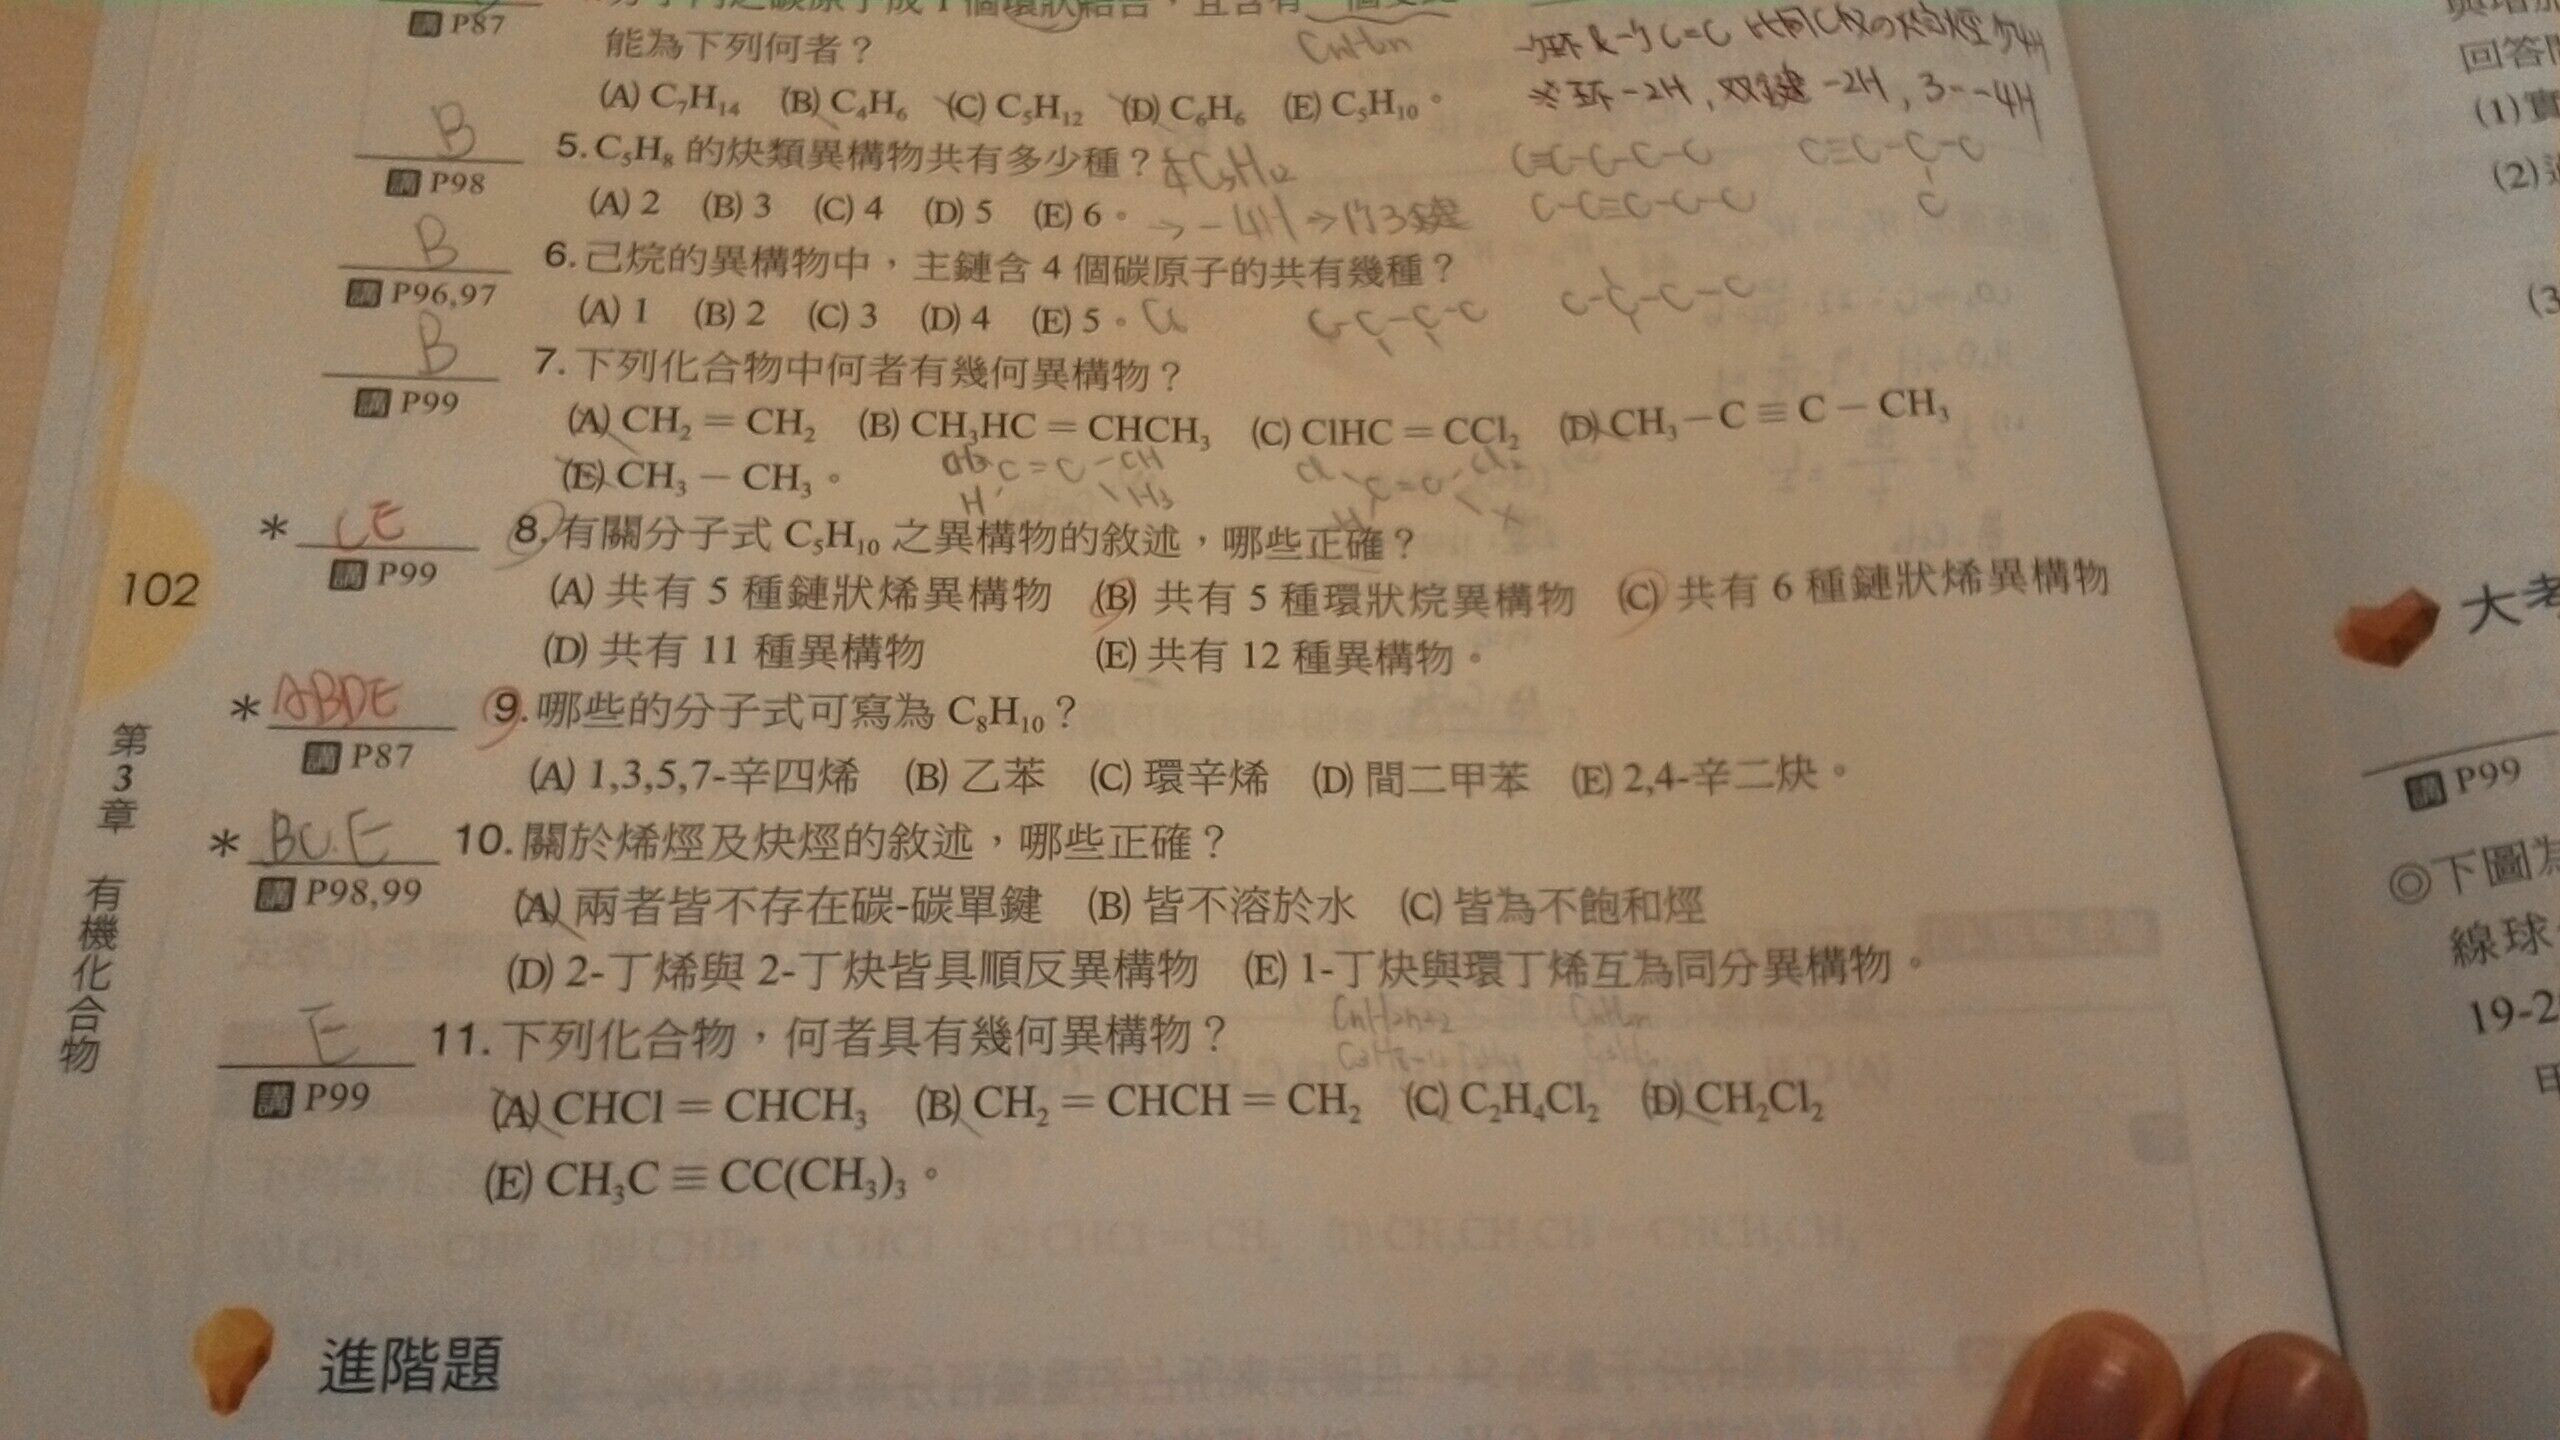 講 P87
能為下列何者？
CnH2n
(A) C₇H₁₄ (B) C₄H₆ (C) C₅H₁₂ (D) C₆H₆ (E) C₅H₁₀。
※环-2H，双鍵-2H，3--4H
B
講 P98
5. C₅H₈ 的炔類異構物共有多少種？
C₅H₁₂
(A) 2 (B) 3 (C) 4 (D) 5 (E) 6。
→-4H→
C≡C-C-C-C
C≡C-C-C
C
C-C≡C-C-C
B
講 P96,97
6. 己烷的異構物中，主鏈含 4 個碳原子的共有幾種？
(A) 1 (B) 2 (C) 3 (D) 4 (E) 5。
C-C-C-C
C-C-C-C
B
講 P99
7. 下列化合物中何者有幾何異構物？
(A) CH₂＝CH₂ (B) CH₃HC＝CHCH₃ (C) ClHC＝CCl₂ (D) CH₃－C≡C－CH₃
(E) CH₃－CH₃。
* CE
講 P99
8. 有關分子式 C₅H₁₀ 之異構物的敘述，哪些正確？
(A) 共有 5 種鏈狀烯異構物 (B) 共有 5 種環狀烷異構物 (C) 共有 6 種鏈狀烯異構物
(D) 共有 11 種異構物 (E) 共有 12 種異構物。
* ABDE
講 P87
9. 哪些的分子式可寫為 C₈H₁₀？
(A) 1,3,5,7-辛四烯 (B) 乙苯 (C) 環辛烯 (D) 間二甲苯 (E) 2,4-辛二炔。
* BC.E
講 P98,99
10. 關於烯烴及炔烴的敘述，哪些正確？
(A) 兩者皆不存在碳-碳單鍵 (B) 皆不溶於水 (C) 皆為不飽和烴
(D) 2-丁烯與 2-丁炔皆具順反異構物 (E) 1-丁炔與環丁烯互為同分異構物。
CnH2n+2
E
講 P99
11. 下列化合物，何者具有幾何異構物？
(A) CHCl＝CHCH₃ (B) CH₂＝CHCH＝CH₂ (C) C₂H₄Cl₂ (D) CH₂Cl₂
(E) CH₃C≡CC(CH₃)₃。
進階題
102
第3章 有機化合物
回答
(1)
(2)
(3
大考
講 P99
◎下圖為
線球
19-2